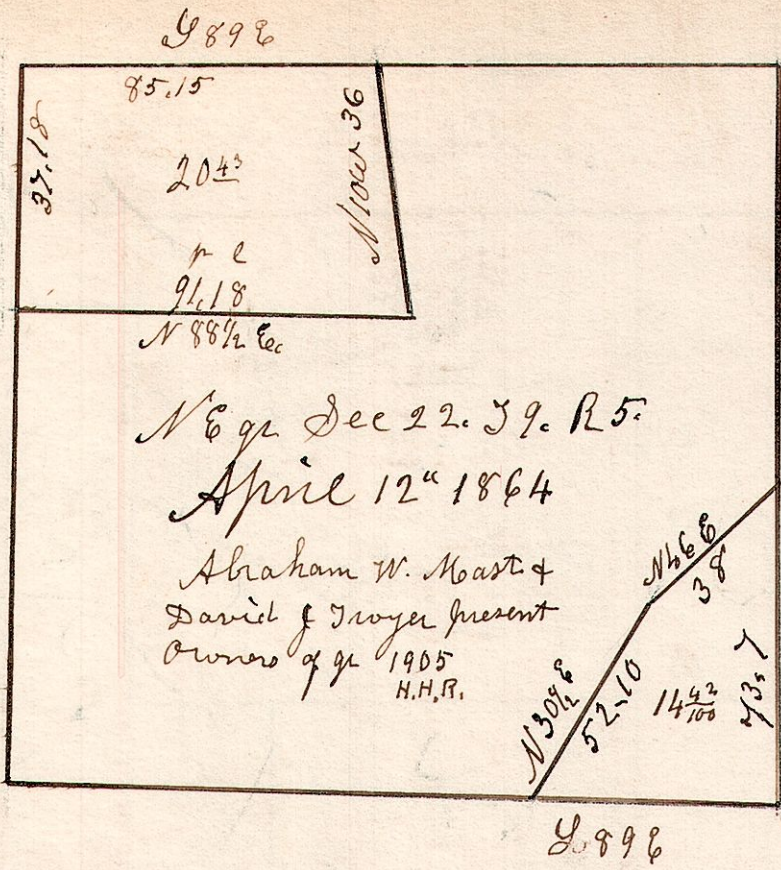 S 89 E
85.15
37.18
N 10 W 36
20 43
p l
91.18
N 88 1/2 E.
N E qr Sec 22. T 9. R 5.
April 12" 1864
Abraham W. Mast &
David J Troyer present
Owners of qr 1905
H.H.R.
N 46 E
38
N 30 1/2 E
52.10
14 42/100
73.7
S 89 E